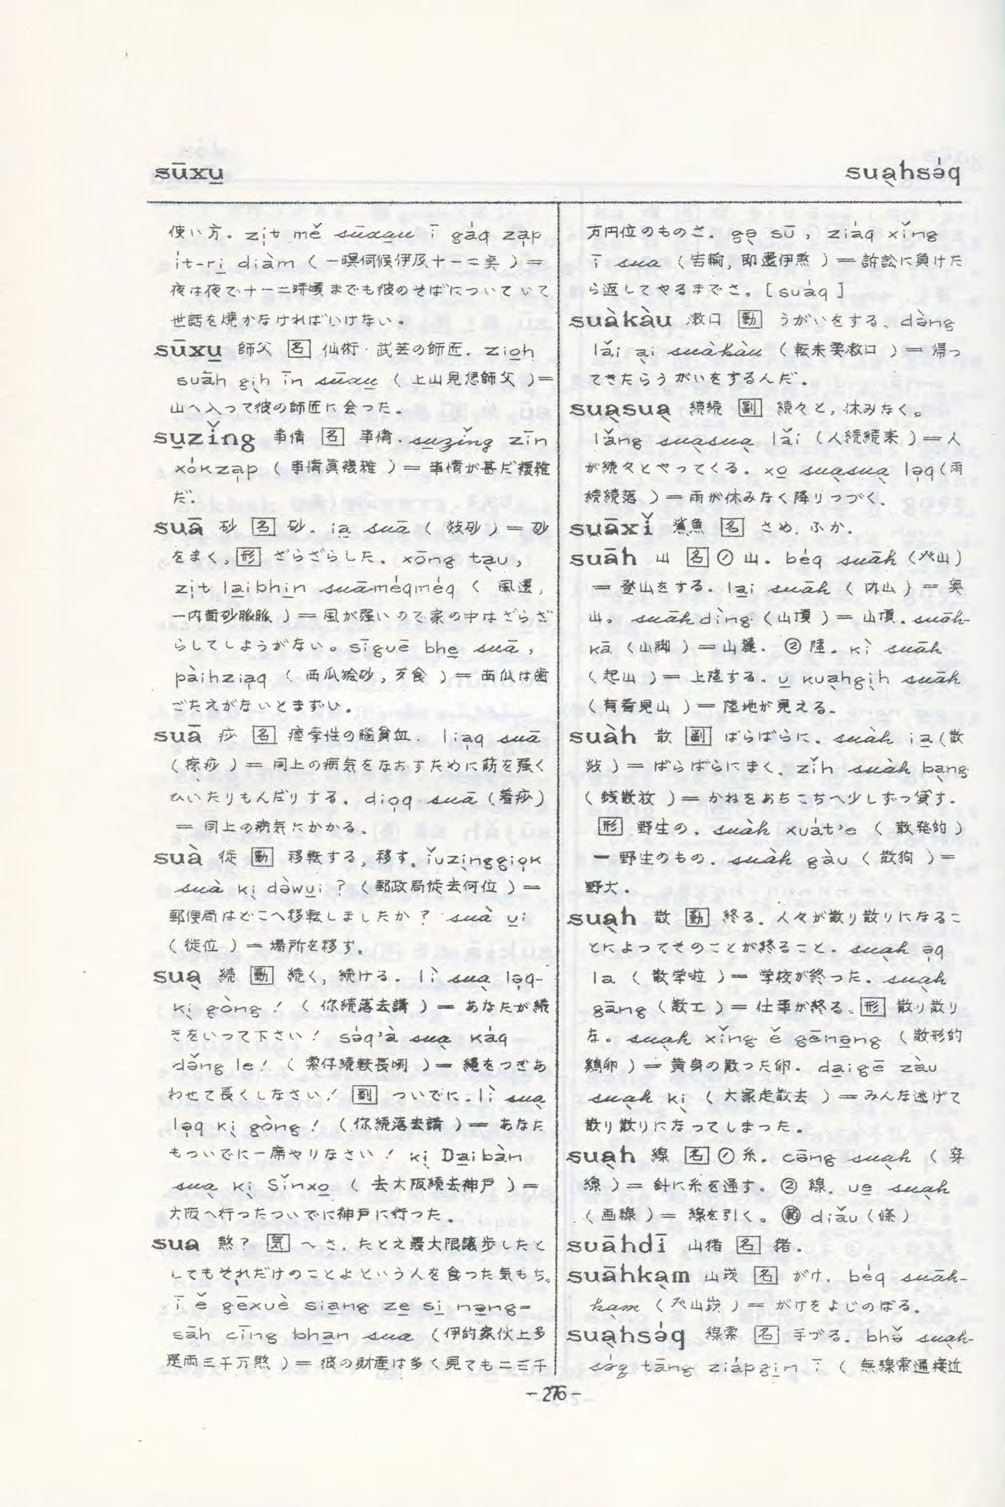 sūxu̲
suạhsə̍q
使い方. zi̍t me̊ sūxau ī ga̍q zạp
i̍t-ri̲ diàm ( 一暝伺候伊及十一二奌 ) =
夜は夜で十一二時頃までも彼のそばについていて
世話を焼かなければいけない。
sūxu̲ 師父 [名] 仙術・武芸の師匠. zioh
suāh gịh īn sūxu̲ ( 上山見怹師父 )=
山へ入って彼の師匠に会った。
su̲zǐng 事情 [名] 事情. su̲zǐng zīn
xo̍kza̍p ( 事情真複雑 )= 事情が甚だ複雑
だ.
suā 砂 [名] 砂. ia̲ suā ( 砂 ) = 砂
をまく。[形] ざらざらした. xōng tạu,
zi̍t la̲ibhi̲n suāme̍qme̍q ( 風透,
一内面砂脈脈 ) = 風が強いので家の中はざらざ
らしてしようがない。sīguē bhe̲ suā,
pàihzia̍q ( 西瓜 砂, 歹食 ) = 西瓜は歯
ごたえがないとまずい.
suā 痧 [名] 痙攣性の脳貧血. lia̍q suā
( 痧 ) = 同上の病気をなおすために筋を強く
ひいたりもんだりする. dio̍q suā (着痧)
= 同上の病気にかかる.
suà 徙 [動] 移転する, 移す. ǐuzìnggio̍k
suà kị dəwui ? ( 郵政局徙去何位 ) =
郵便局はどこへ移転しましたか ? suà ui
( 徙位 ) = 場所を移す.
suạ 続 [動] 続く, 続ける. lì suạ lə̍q-
kị gòng ! ( 你続落去講 ) = あなたが続
きをいって下さい ! sə̍q'à suạ kàq
dǎng le ! ( 索仔続較長咧 )= 縄をつぎあ
わせて長くしなさい ! [副] ついでに. lì suạ
lə̍q kị gòng ! ( 你続落去講 )= あなた
もついでに一席やりなさい ! kị Da̲ibàn
suạ kị Sīnxo̲ ( 去大阪続去神戸 ) =
大阪へ行ったついでに神戸に行った.
sua 煞? [気] ～さ. たとえ最大限譲歩したと
してもそれだけのことよという人を食った気もち.
ī ě gēxuè sia̲ng ze̲ si̲ nə̲ng-
sāh cīng bha̲n sua ( 伊的家伙上多
是両三千万煞 ) = 彼の財産は多く見ても二三千
万円位のものさ. gẹ sū, zia̍q xǐng
ī sua ( 告輸, 即還伊煞 ) = 訴訟に負けた
ら返してやるまでさ。[suàq]
suàkàu 漱口 [動] うがいをする. dòng
lǎi ại suàkàu ( 転来要漱口 ) = 帰っ
てきたらうがいをするんだ.
suạsuạ 続続 [副] 続々と, 休みなく。
lǎng suạsuạ lǎi (人続続来 )= 人
が続々とやってくる. xo̲ suạsuạ lə̍q (雨
続続落 )= 雨が休みなく降りつづく.
suāxǐ 鯊魚 [名] さめ. ふか.
suāh 山 [名] ① 山. bèq suāh (山)
= 登山をする. la̲i suāh ( 内山 ) = 奥
山。suāhdìng (山頂 )= 山頂. suāh-
kā ( 山脚 ) = 山麓. ② 陸. kì suāh
( 起山 ) = 上陸する. u̲ kuạhgịh suāh
( 有看見山 ) = 陸地が見える.
suàh 散 [副] ばらばらに. suàh ia̲ (散
) = ばらばらにまく. zǐh suàh bạng
( 銭散放 )= かねをあちこちへ少しずつ貸す.
[形] 野生の. suàh xuàt'e ( 散発的 )
= 野生のもの. suàh gàu ( 散狗 ) =
野犬.
suạh 散 [動] 終る. 人々が散り散りになるこ
とによってそのことが終ること. suạh ə̍q
la ( 散学啦 )= 学校が終った. suạh
gāng (散工 ) = 仕事が終る。[形] 散り散り
な. suạh xǐng ě gēnə̲ng ( 散形的
鶏卵 ) = 黄身の散った卵. da̲igē zàu
suạh kị ( 大家走散去 ) = みんな逃げて
散り散りになってしまった.
suạh 線 [名] ① 糸. cōng suạh ( 穿
線 ) = 針に糸を通す. ② 線. ue̲ suạh
( 画線 )= 線を引く。[範] diǎu (條)
suāhdī 山猪 [名] 猪.
suāhkạm 山崁 [名] がけ. bèq suāh-
kạm (山崁 ) = がけをよじのぼる.
suạhsə̍q 線索 [名] 手づる. bhə̌ suạh-
sə̍q tāng zia̍pgi̲n ī ( 無線索通接近
-276-